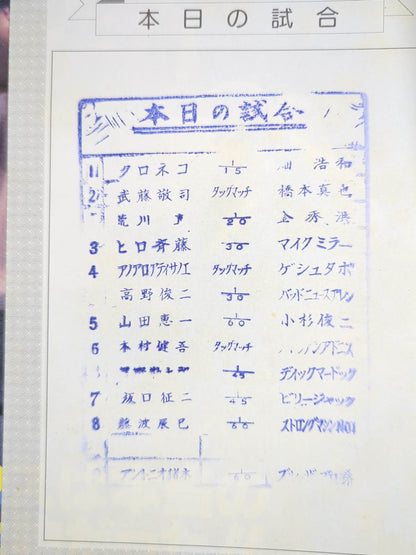 本日の試合
本日の試合
1 クロネコ 1/15 畑 浩和
2 武藤敬司 タッグマッチ 橋本真也
荒川 1/20 金秀洪
3 ヒロ斉藤 1/30 マイクミラー
4 アノアロアティサノエ タッグマッチ ゲシュタポ
高野俊二 1/30 バッドニュースアレン
5 山田恵一 1/60 小杉俊二
6 木村健吾 タッグマッチ アドニス
1/45 ディックマードック
7 坂口征二 1/45 ビリージャック
8 難波辰巳 1/60 ストロングマシンNO1
アントニオ猪木 1/60